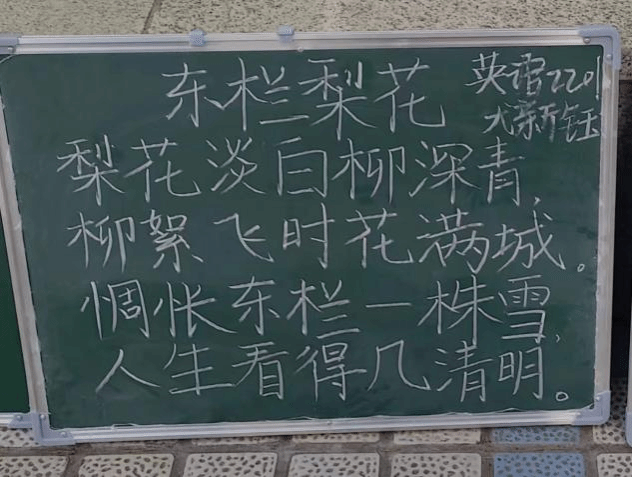 东栏梨花
英语2201
尤新钰
梨花淡白柳深青，
柳絮飞时花满城。
惆怅东栏一株雪，
人生看得几清明。